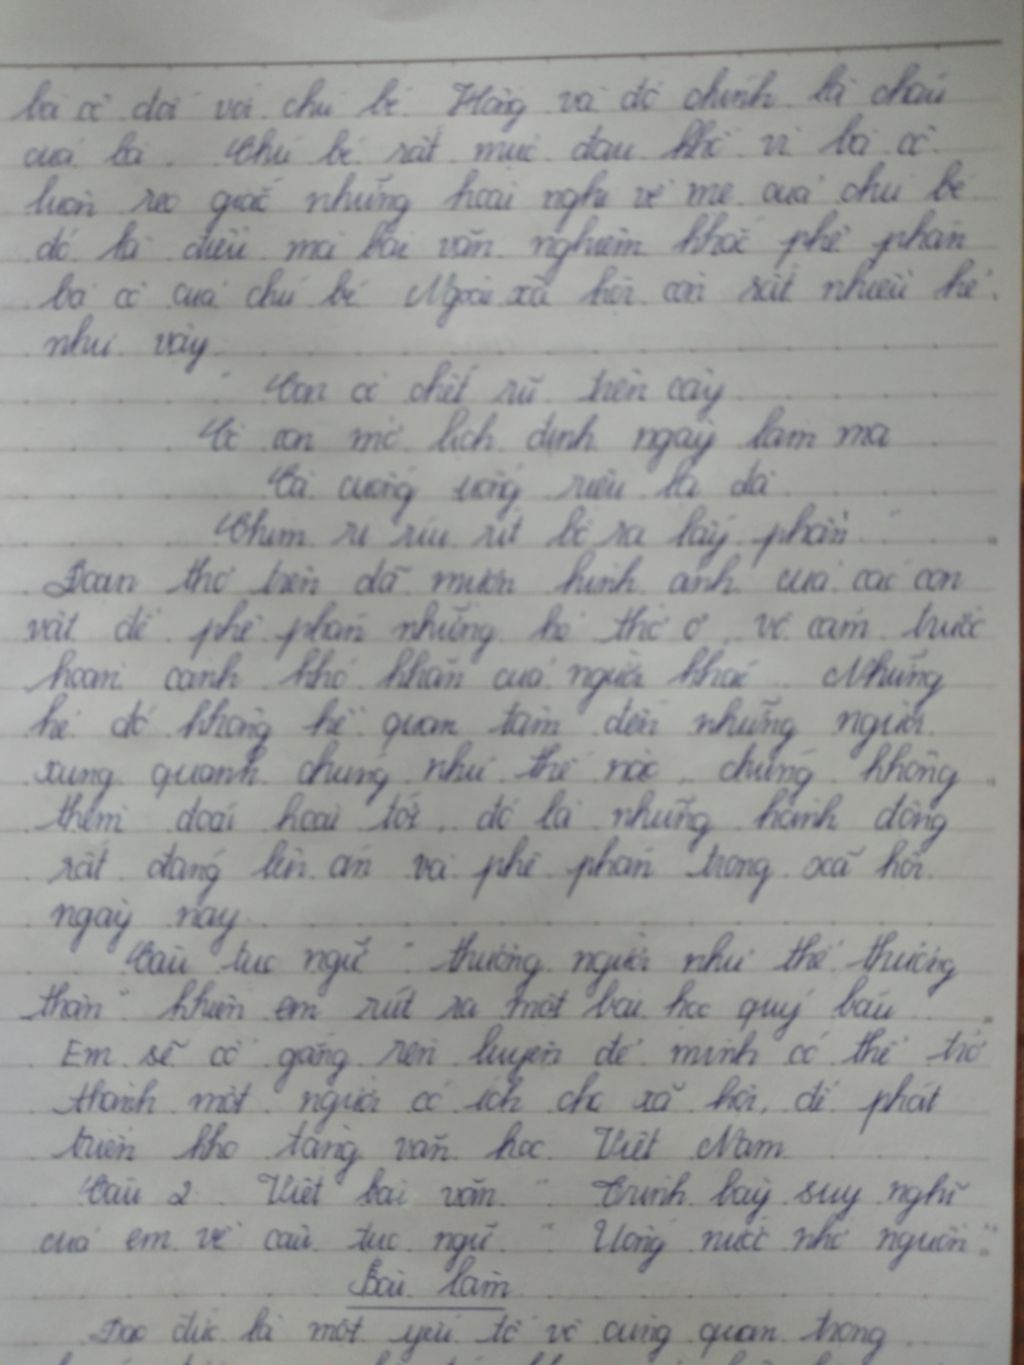 bà cô đối với chú bé Hồng và đó chính là cháu
của bà. Chú bé rất mực đau khổ vì bà cô
luôn reo giắc những hoài nghi về mẹ của chú bé
đó là điều mà bài văn nghiêm khắc phê phán
bà cô của chú bé Ngoài xã hội còn rất nhiều kẻ
như vậy
" Con cò chết rũ trên cây
Cò con mở lịch định ngày làm ma
Cà cuống uống rượu la đà
Chim ri ríu rít bò ra lấy phần "
Đoạn thơ trên đã mượn hình ảnh của các con
vật để phê phán những kẻ thờ ơ, vô cảm trước
hoàn cảnh khó khăn của người khác. Những
kẻ đó không hề quan tâm đến những người
xung quanh chúng như thế nào, chúng không
thèm đoái hoài tới, đó là những hành động
rất đáng lên án và phê phán trong xã hội
ngày nay
Câu tục ngữ " thương người như thể thương
thân " khiến em rút ra một bài học quý báu
Em sẽ cố gắng rèn luyện để mình có thể trở
thành một người có ích cho xã hội, để phát
triển kho tàng văn học Việt Nam
Câu 2 Viết bài văn " Trình bày suy nghĩ
của em về câu tục ngữ " Uống nước nhớ nguồn "
Bài làm
Đạo đức là một yếu tố vô cùng quan trọng